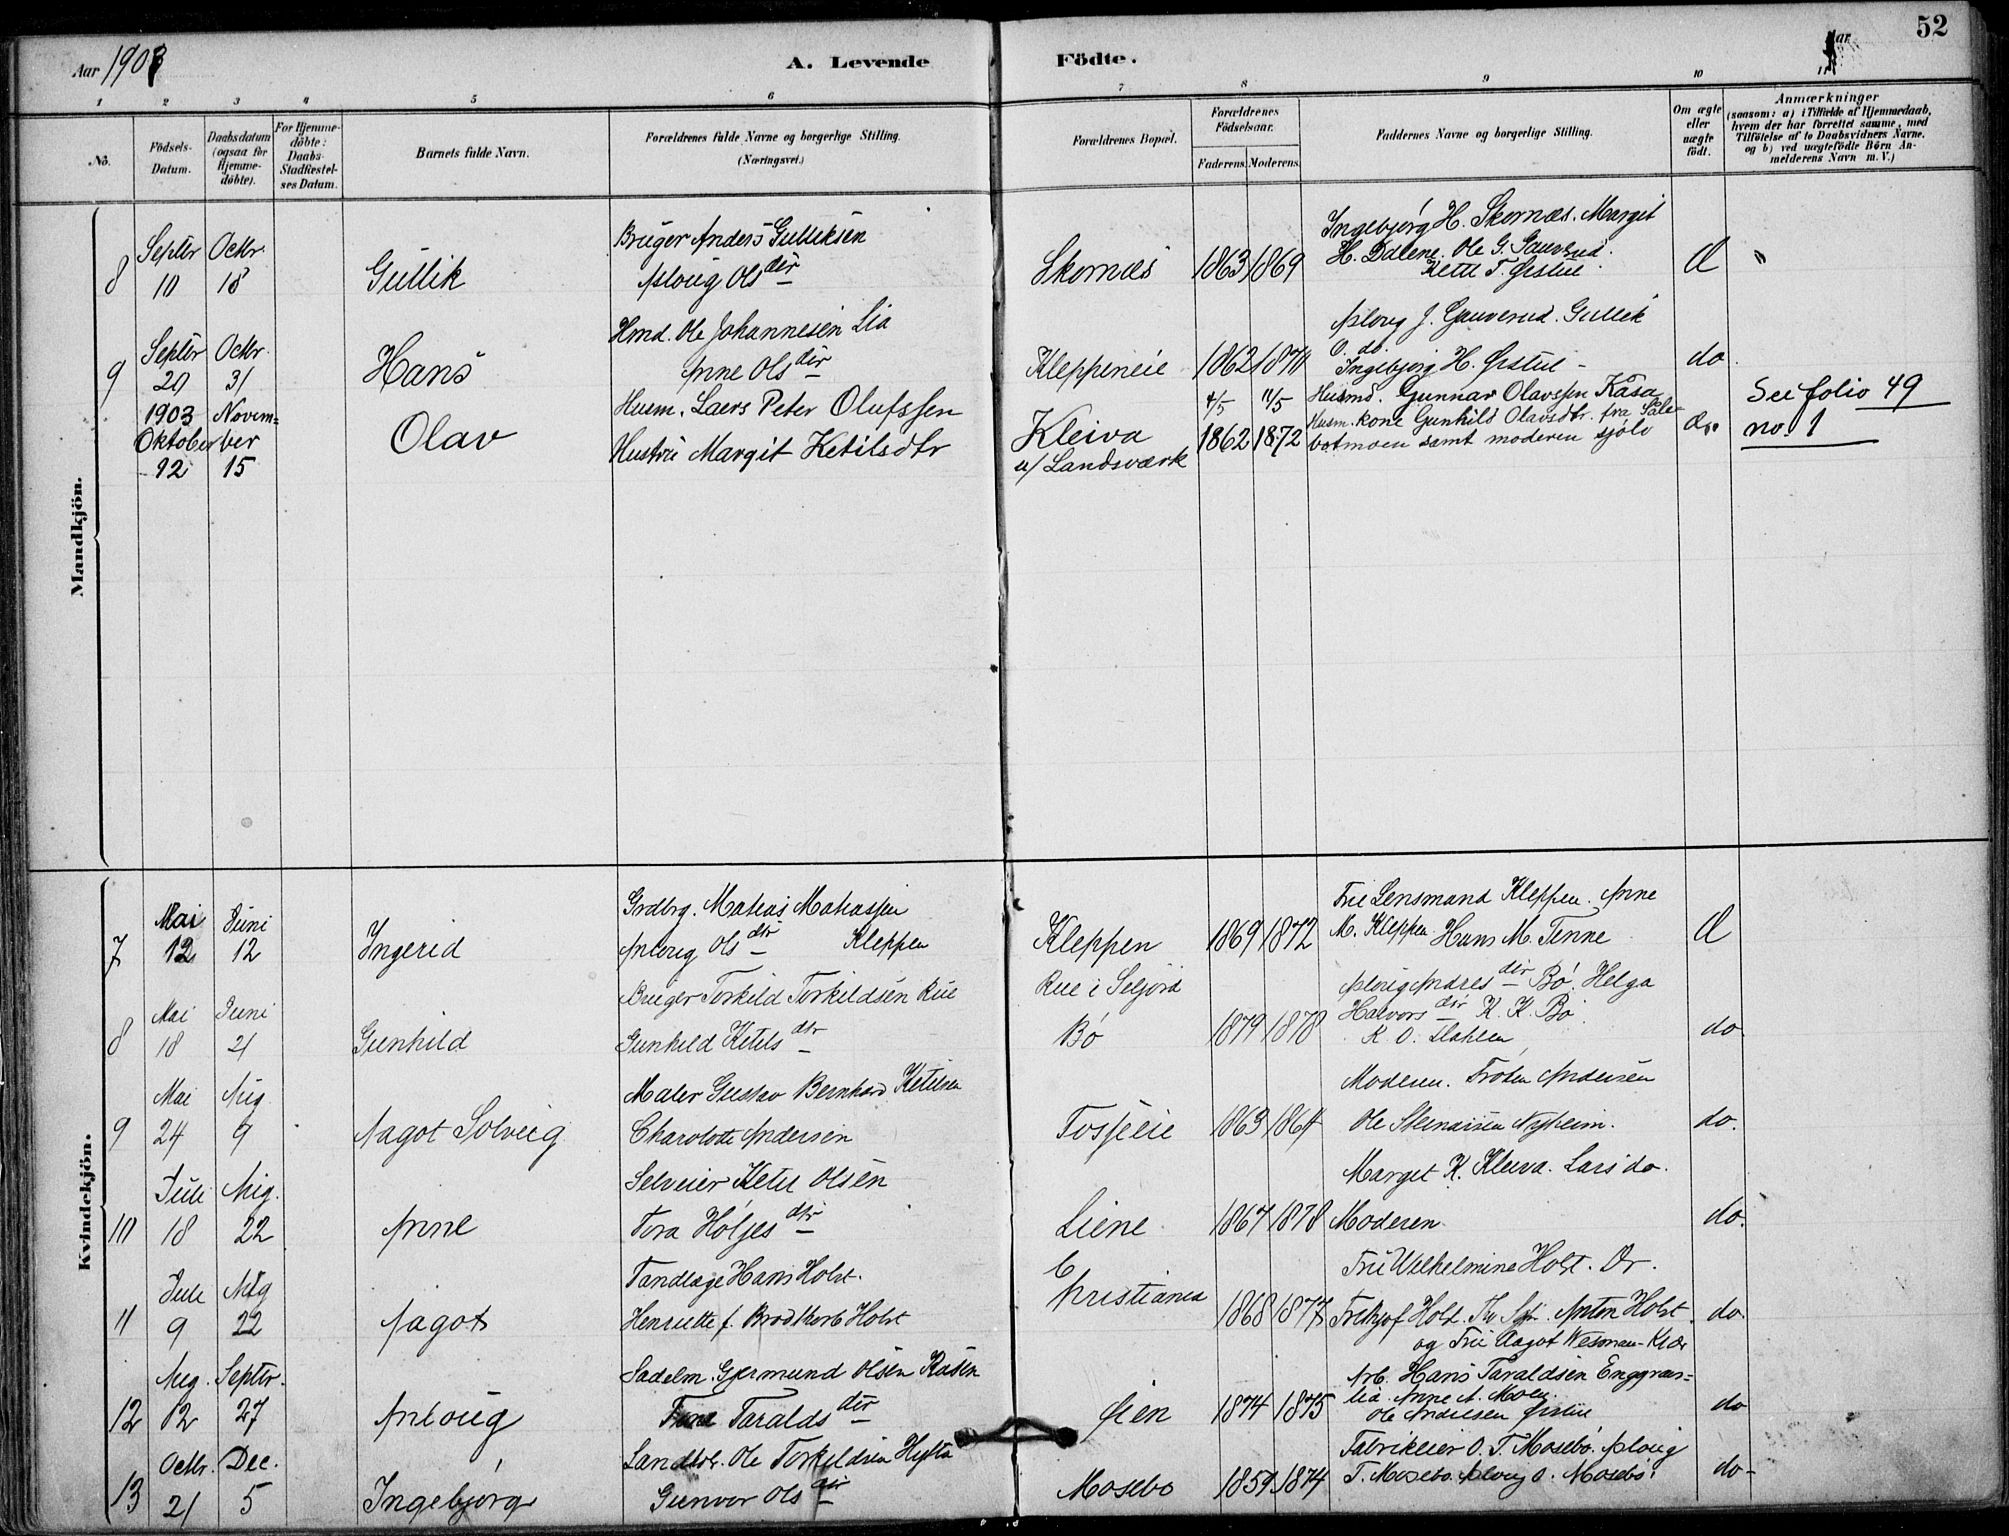 Aar 1903
A. Levende Födte.
Aar
52
1 2 3 4 5 6 7 8 9 10 11
No.
Födsels-Datum.
Daabsdatum (ogsaa for Hjemme-döbte).
For Hjemme-döbte: Daabs-Stadfæstel-ses Datum.
Barnets fulde Navn.
Forældrenes fulde Navne og borgerlige Stilling. (Næringsvei.)
Forældrenes Bopæl.
Forældrenes Födselsaar.
Faderens. Moderens.
Faddernes Navne og borgerlige Stilling.
Om ægte eller uægte födt.
Anmærkninger (saasom: a) i Tilfælde af Hjemmedaab, hvem der har forrettet samme, med Tilföielse af to Daabsvidners Navne. og b) ved uægtefödte Börn An-melderens Navn m. V.)
Mandkjön.
8 Septbr 10 Octbr. 18 Gullik
Bruger Anders Gulliksen
Asloug Olsdtr
Skornæs 1863 1869
Ingebjørg H. Skornæs. Margit
H. Dalene. Ole G. Gauverud.
Ketil T. Ørstul.
Æ
9 Septbr 20 Octbr. 31 Hans
Hmd. Ole Johannesen Lia
Anne Olsdtr
Kleppeneie 1862 1870
Asloug J. Gauverud. Gullik
O. do.
Ingebjørg H. Ørstul -
do
1903 Oktober 12 November 15 Olav
Husm. Laers Peter Olufssen
Hustru Margit Ketilsdtr
Kleiva
u/ Landsværk
4/5 1862 11/5 1872
Husmd. Gunnar Olavssen Kåsa
Husm. kone Gunhild Olavsdtr. fra Sale-
botmoen samt moderen sjølv
do.
See folio 49
no. 1
Kvindekjön.
7 Mai 12 Juni 12 Ingerid
Grdbrg. Matias Matiassen
Anlaug Olsdtr Kleppen
Kleppen 1869 1872
Frue Lensmand Kleppen. Anne
M. Kleppen Hans M. Tinne
Æ
8 Mai 18 Juni 21 Gunhild
Bruger Torkild Torkildsen Rue
Gunhild Ketilsdtr
Rue i Seljord
Bø 1879 1878
Asloug Andresdtr Bø. Helga
Halvorsdtr K. K. Bø
do.
9 Mai 24 Aug. 9 Aagot Solveig
Maler Gustav Bernhard Ketilsen
Charolotte Andersen
1863 1864
Moderen. Frøken Andersen
do.
10 Juli 18 Aug. 22 Anne
Selveier Ketil Olsen
Tora Høljesdtr
Liene 1867 1878
Marget K. Kleiva. Lars do.
Moderen
do.
11 Juli 9 Aug 22 Aagot
Tandlæge Hans Holst.
Henriette f. Brodtkorb Holst
Christiania 1868 1877
Frue Wilhelmine Holst. Dr.
Fridtjof Holst. Anton Holst
og Frue Aagot
do.
12 Aug. 12 Septbr. 27 Anloug
Sadelm. Gjermund Olsen Kåsen
Taraldsdtr
Øien 1874 1875
Arb. Hans Taraldsen Enggras=
lia Anne A. Moen.
Ole Andersen Ørstul
do
13 Octbr. 21 Dec. 5 Ingebjørg
Landbr. Ole Torkildsen Hyfta
Gunvor Olsdtr
Mosebø 1859 1874
Fabrikeier O. T. Mosebø. Asloug
T. Mosebø. Asloug O. Mosebø.
do-